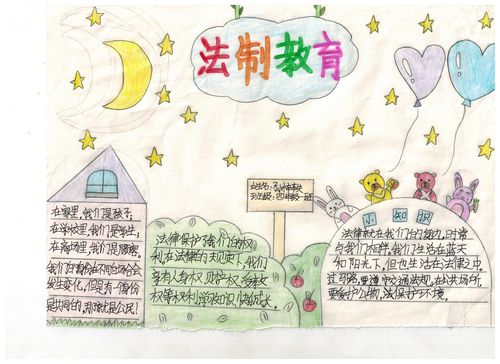 法制教育
姓名:
班级:四年级一班
在家里,我们是孩子;
在学校里,我们是学生;
在商场里,我们是顾客。
我们的身份在不同的场合会
发生变化,但是有一个身份
是共同的,那就是公民!
法律保护了我们的权
利在法律的规定下,我们
享有人身权 受教
权等权利 学知识 快成长。
小知识
法律就在我们的身边,时常
与我们相伴。我们生活在蓝天
和阳光下,但也生活在法律之中。
过马路,要遵守交通法规,在公共场所,
要爱护公物,法保护环境。